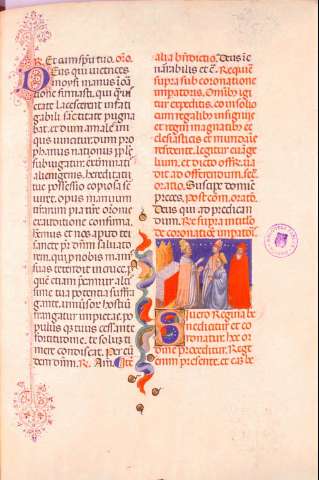 R. Et cum spũ tuo. or̃o.
Deus qui vicenes
moysi manus ĩ orã
tione firmasti. qui quis
etate lacesceret infati
gabili sãctitate pugna
bat. et dum amalech im
iquus vincitur. dum pro
phanus nationũ ppls
subiugatur. exterminatis
alienigenis. hereditati
tue possessio copiosa ser
viret. opus manuum
tuarum pia nr̃e or̃onis
exauditione confirma.
habemus et nos apud te
sancte pr̃ dñm saluato
rem. qui pro nobis man'
suas tetendit in cruce. p
quem etiam precamur altis
sime ut tua potentia suffra
gante. uniuersor̃ hostiũ
frangatur impietas. po
pulus q; tuus cessante
formidine. te solum ti
mere condiscat. Per eũ
dem dñm. R. Amen.
alia bñdictio. Deus ine
narrabilis et c̃. Require
supra sub coronatione
impatoris. Omnib' igi
tur expeditis. eo in solio
cum regalib' insignijs
et regni magnatib' et
ecclesiasticis et mundane
residente. legitur euange
lium. et dicto offr̃. ua
dit ad offerendum. sec̃.
oratio. Suscipe domine
preces. post com̃. orat̃.
Deus qui ad predican
dum. Re supra in titulo
de coronatiõe impator̃.
Si uero Regina be
nedicitur et co
ronatur. hoc or
dine proceditur. Rege
enim presente. et eius be